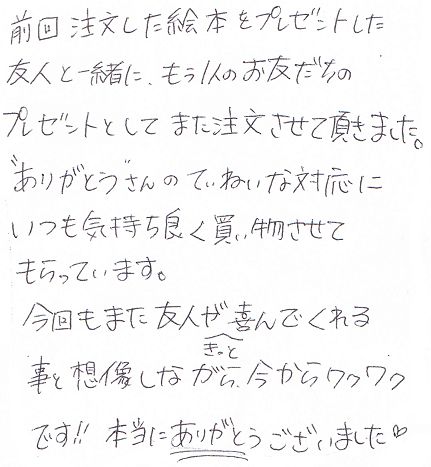 前回注文した絵本をプレゼントした
友人と一緒に、もう1人のお友だちの
プレゼントとしてまた注文させて頂きました。
"ありがとう"さんのていねいな対応に
いつも気持ち良く買い物させて
もらっています。
今回もまた友人がきっと喜んでくれる
事を想像しながら、今からワクワク
です!! 本当にありがとうございました♡